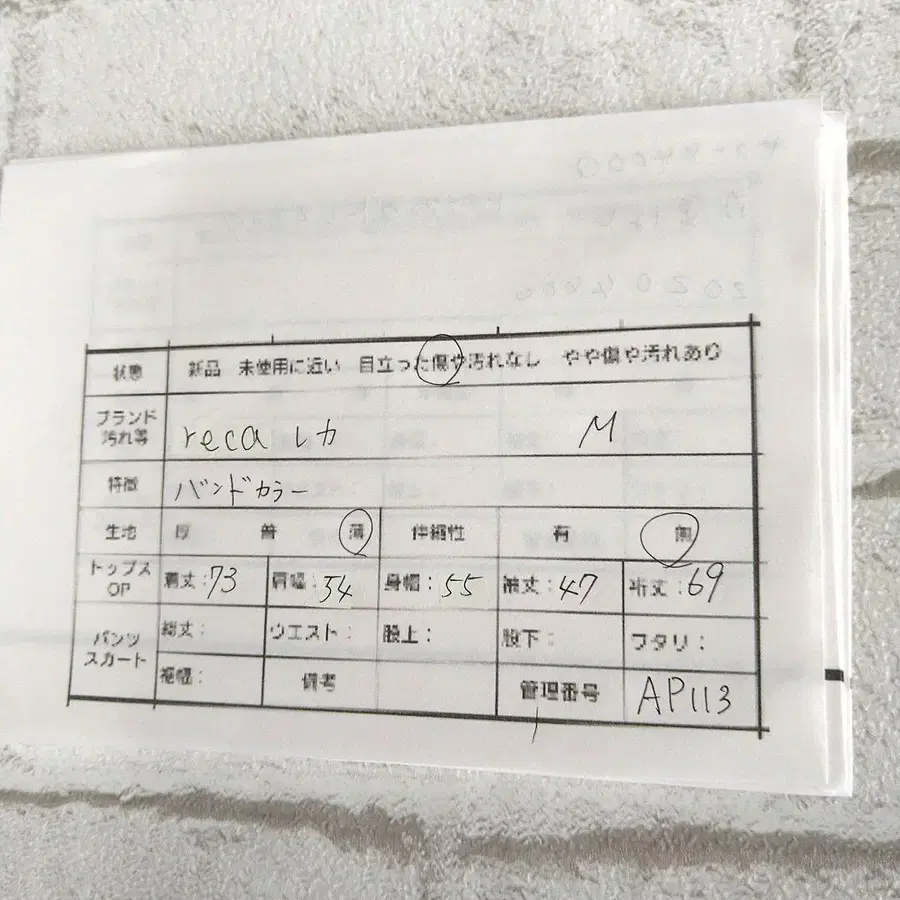 状態 新品 未使用に近い 目立った傷や汚れなし やや傷や汚れあり
ブランド
汚れ等
reca レカ M
特徴 バンドカラー
生地 厚 普 薄 伸縮性 有 無
トップス
OP
着丈:73 肩幅:54 身幅:55 袖丈:47 裄丈:69
パンツ
スカート
総丈: ウエスト:股上: 股下: ワタリ:
裾幅: 備考 管理番号 AP113